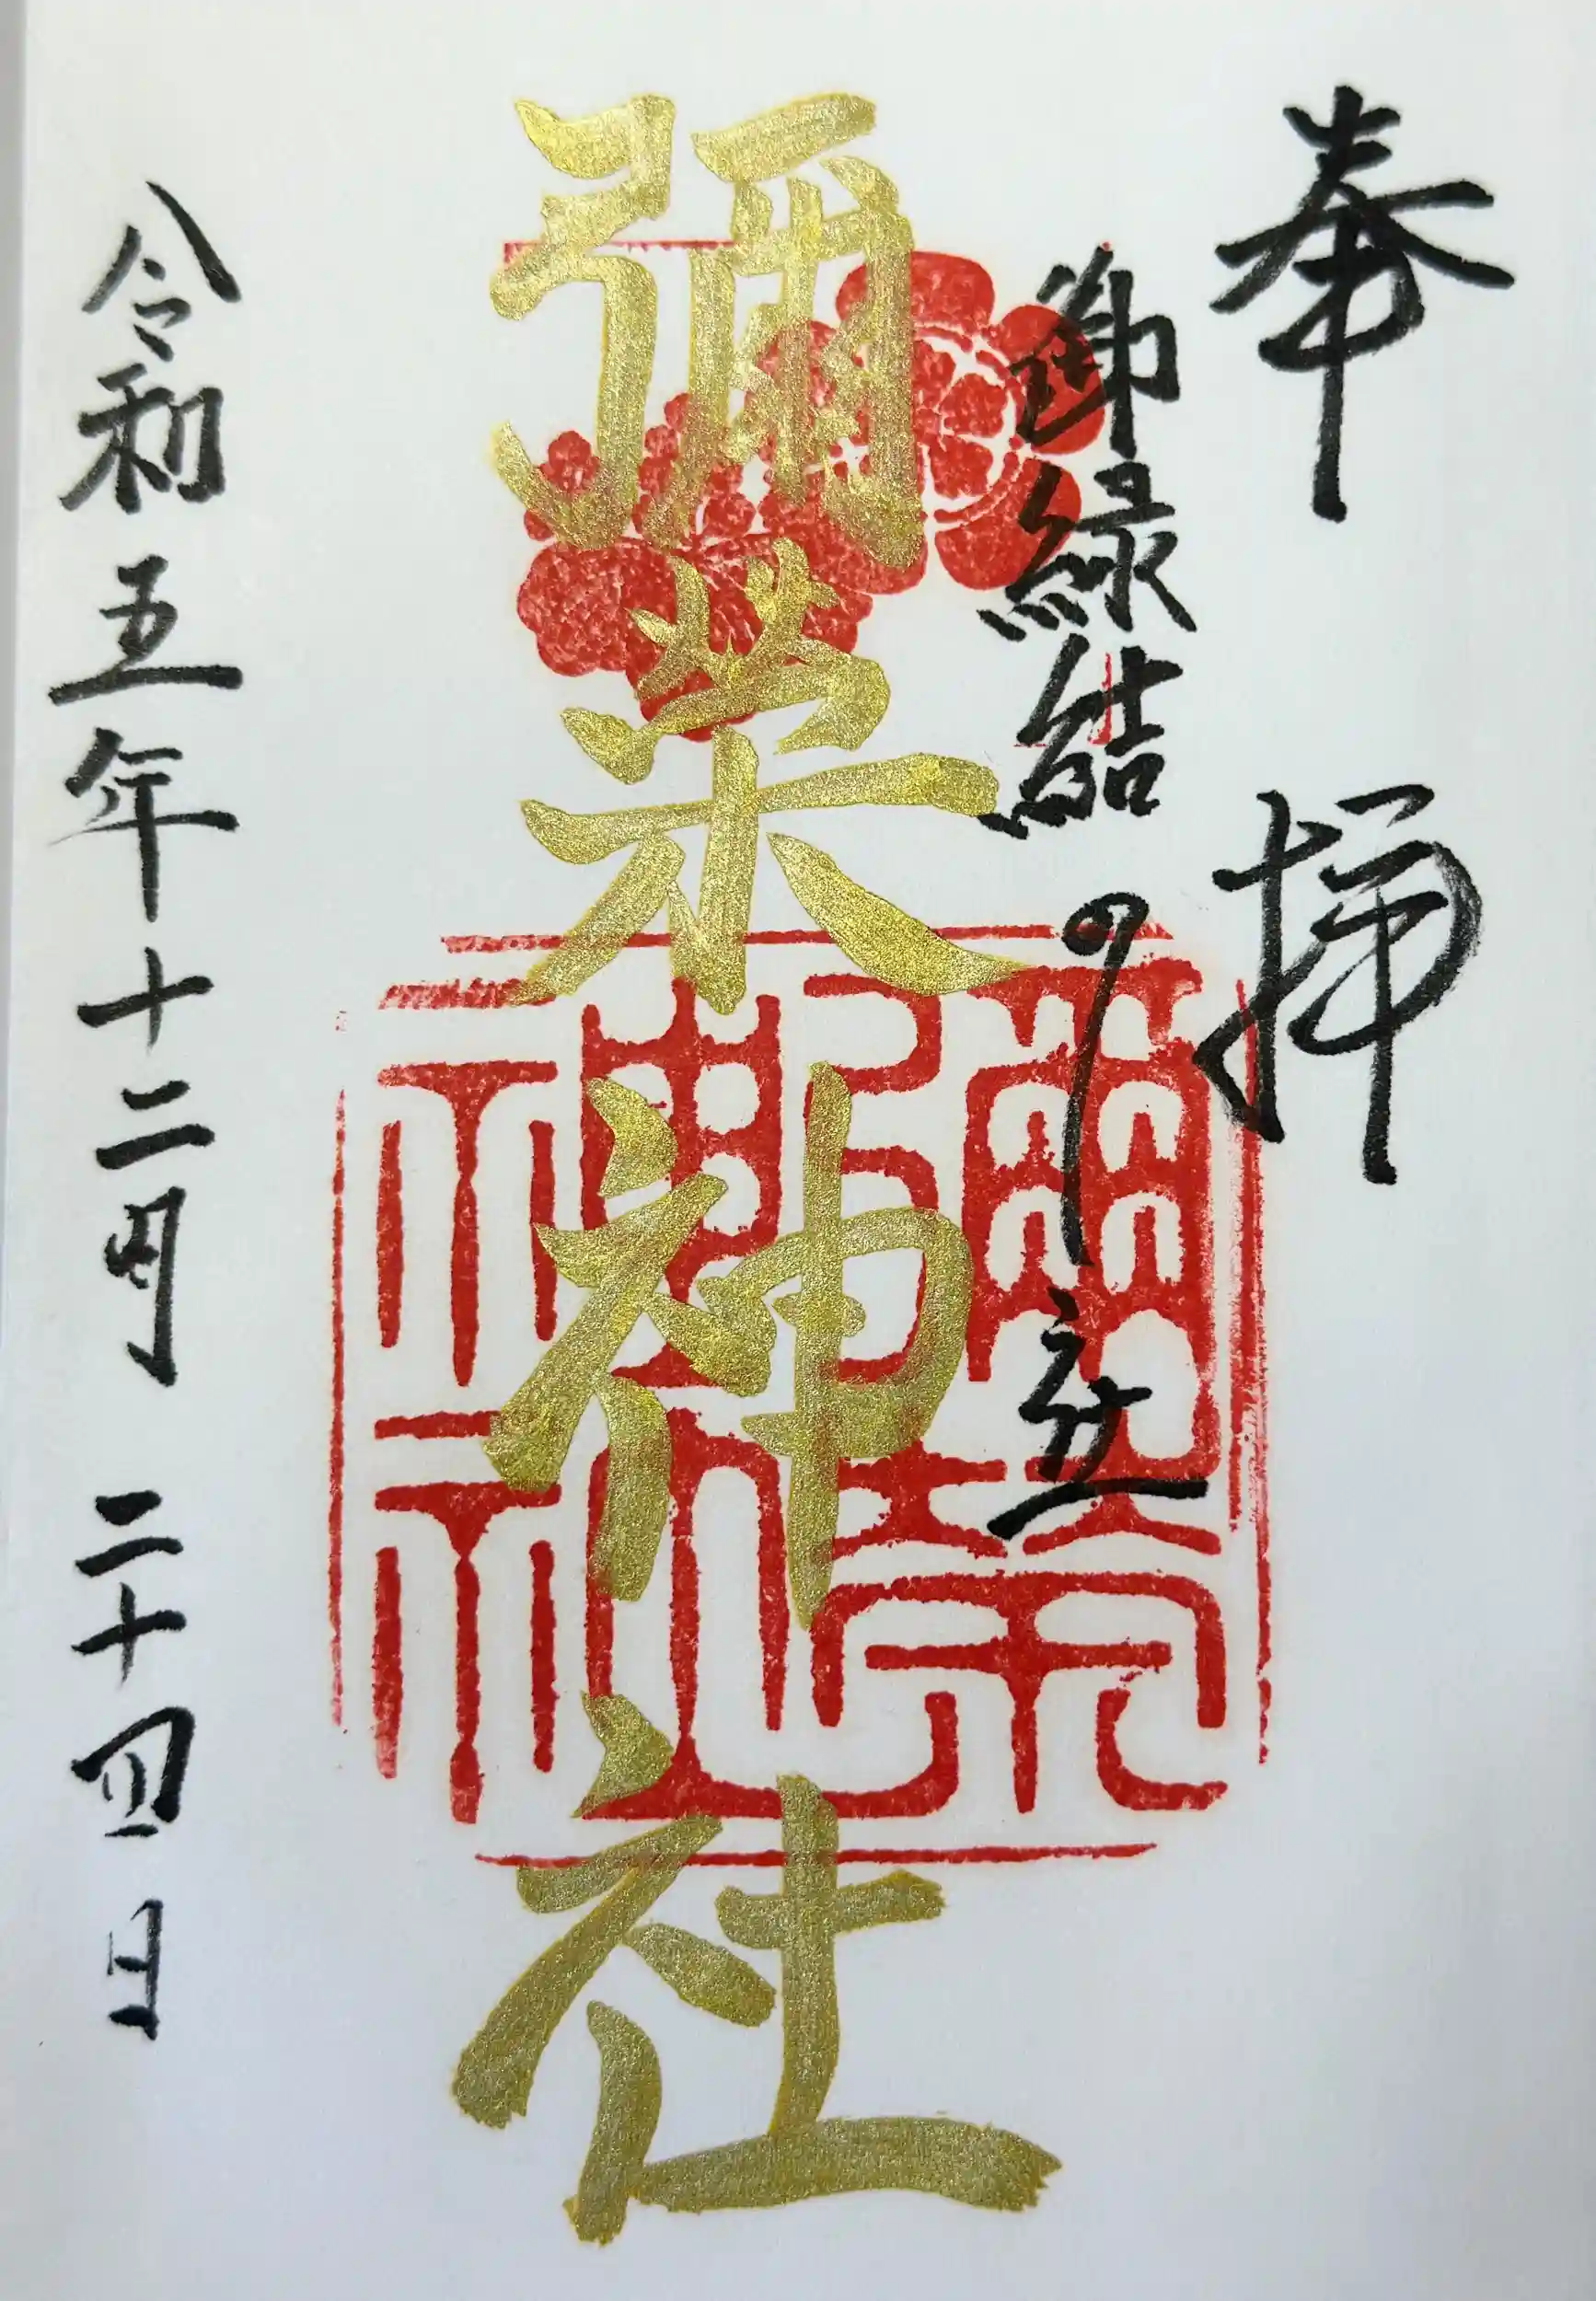 奉拝
御縁結の社
彌榮神社
彌榮神社
令和五年十二月二十四日